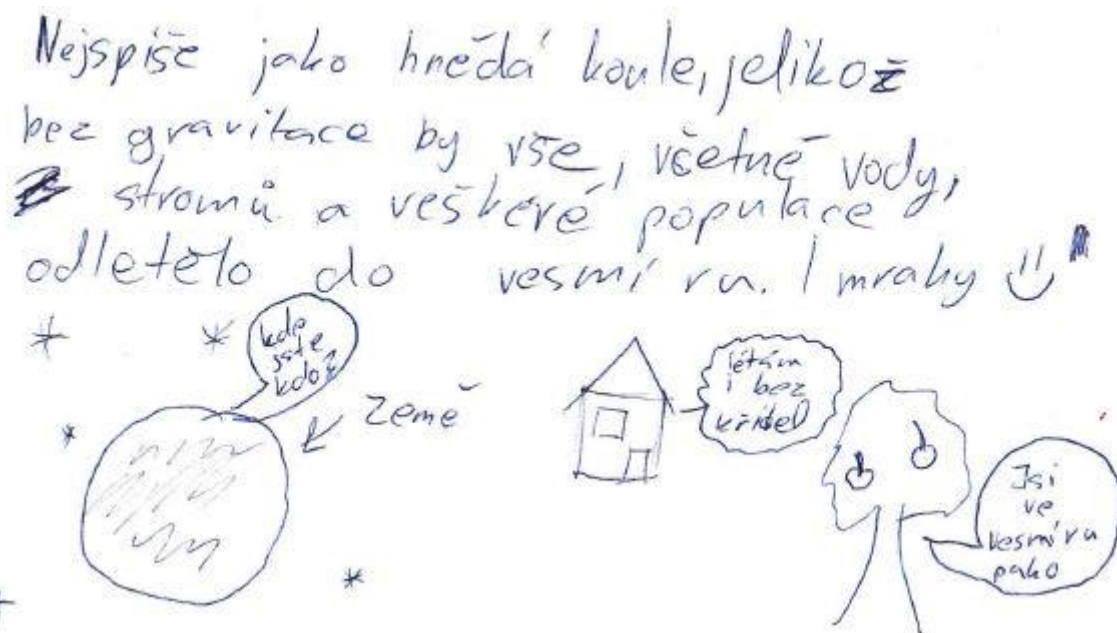 Nejspíše jako hnědá koule, jelikož
bez gravitace by vše, včetně vody,
stromů a veškeré populace
odletělo do vesmíru. I mraky
kde
jste
kdo?
Země
létám
i bez
křídel
Jsi
ve
vesmíru
pako